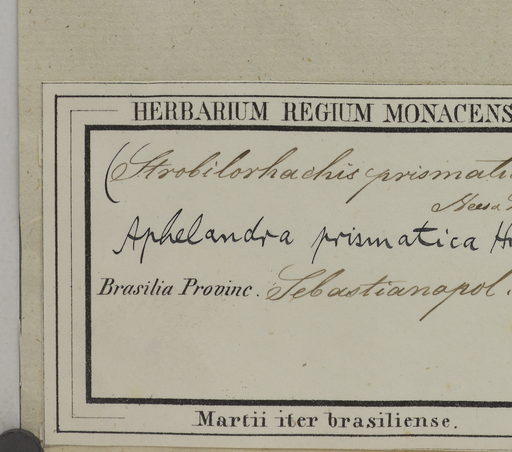 HERBARIUM REGIUM MONACENS
(Strobilorhachis prismati
Nees a
Aphelandra prismatica H
Brasilia Provinc. Sebastianopol.
Martii iter brasiliense.